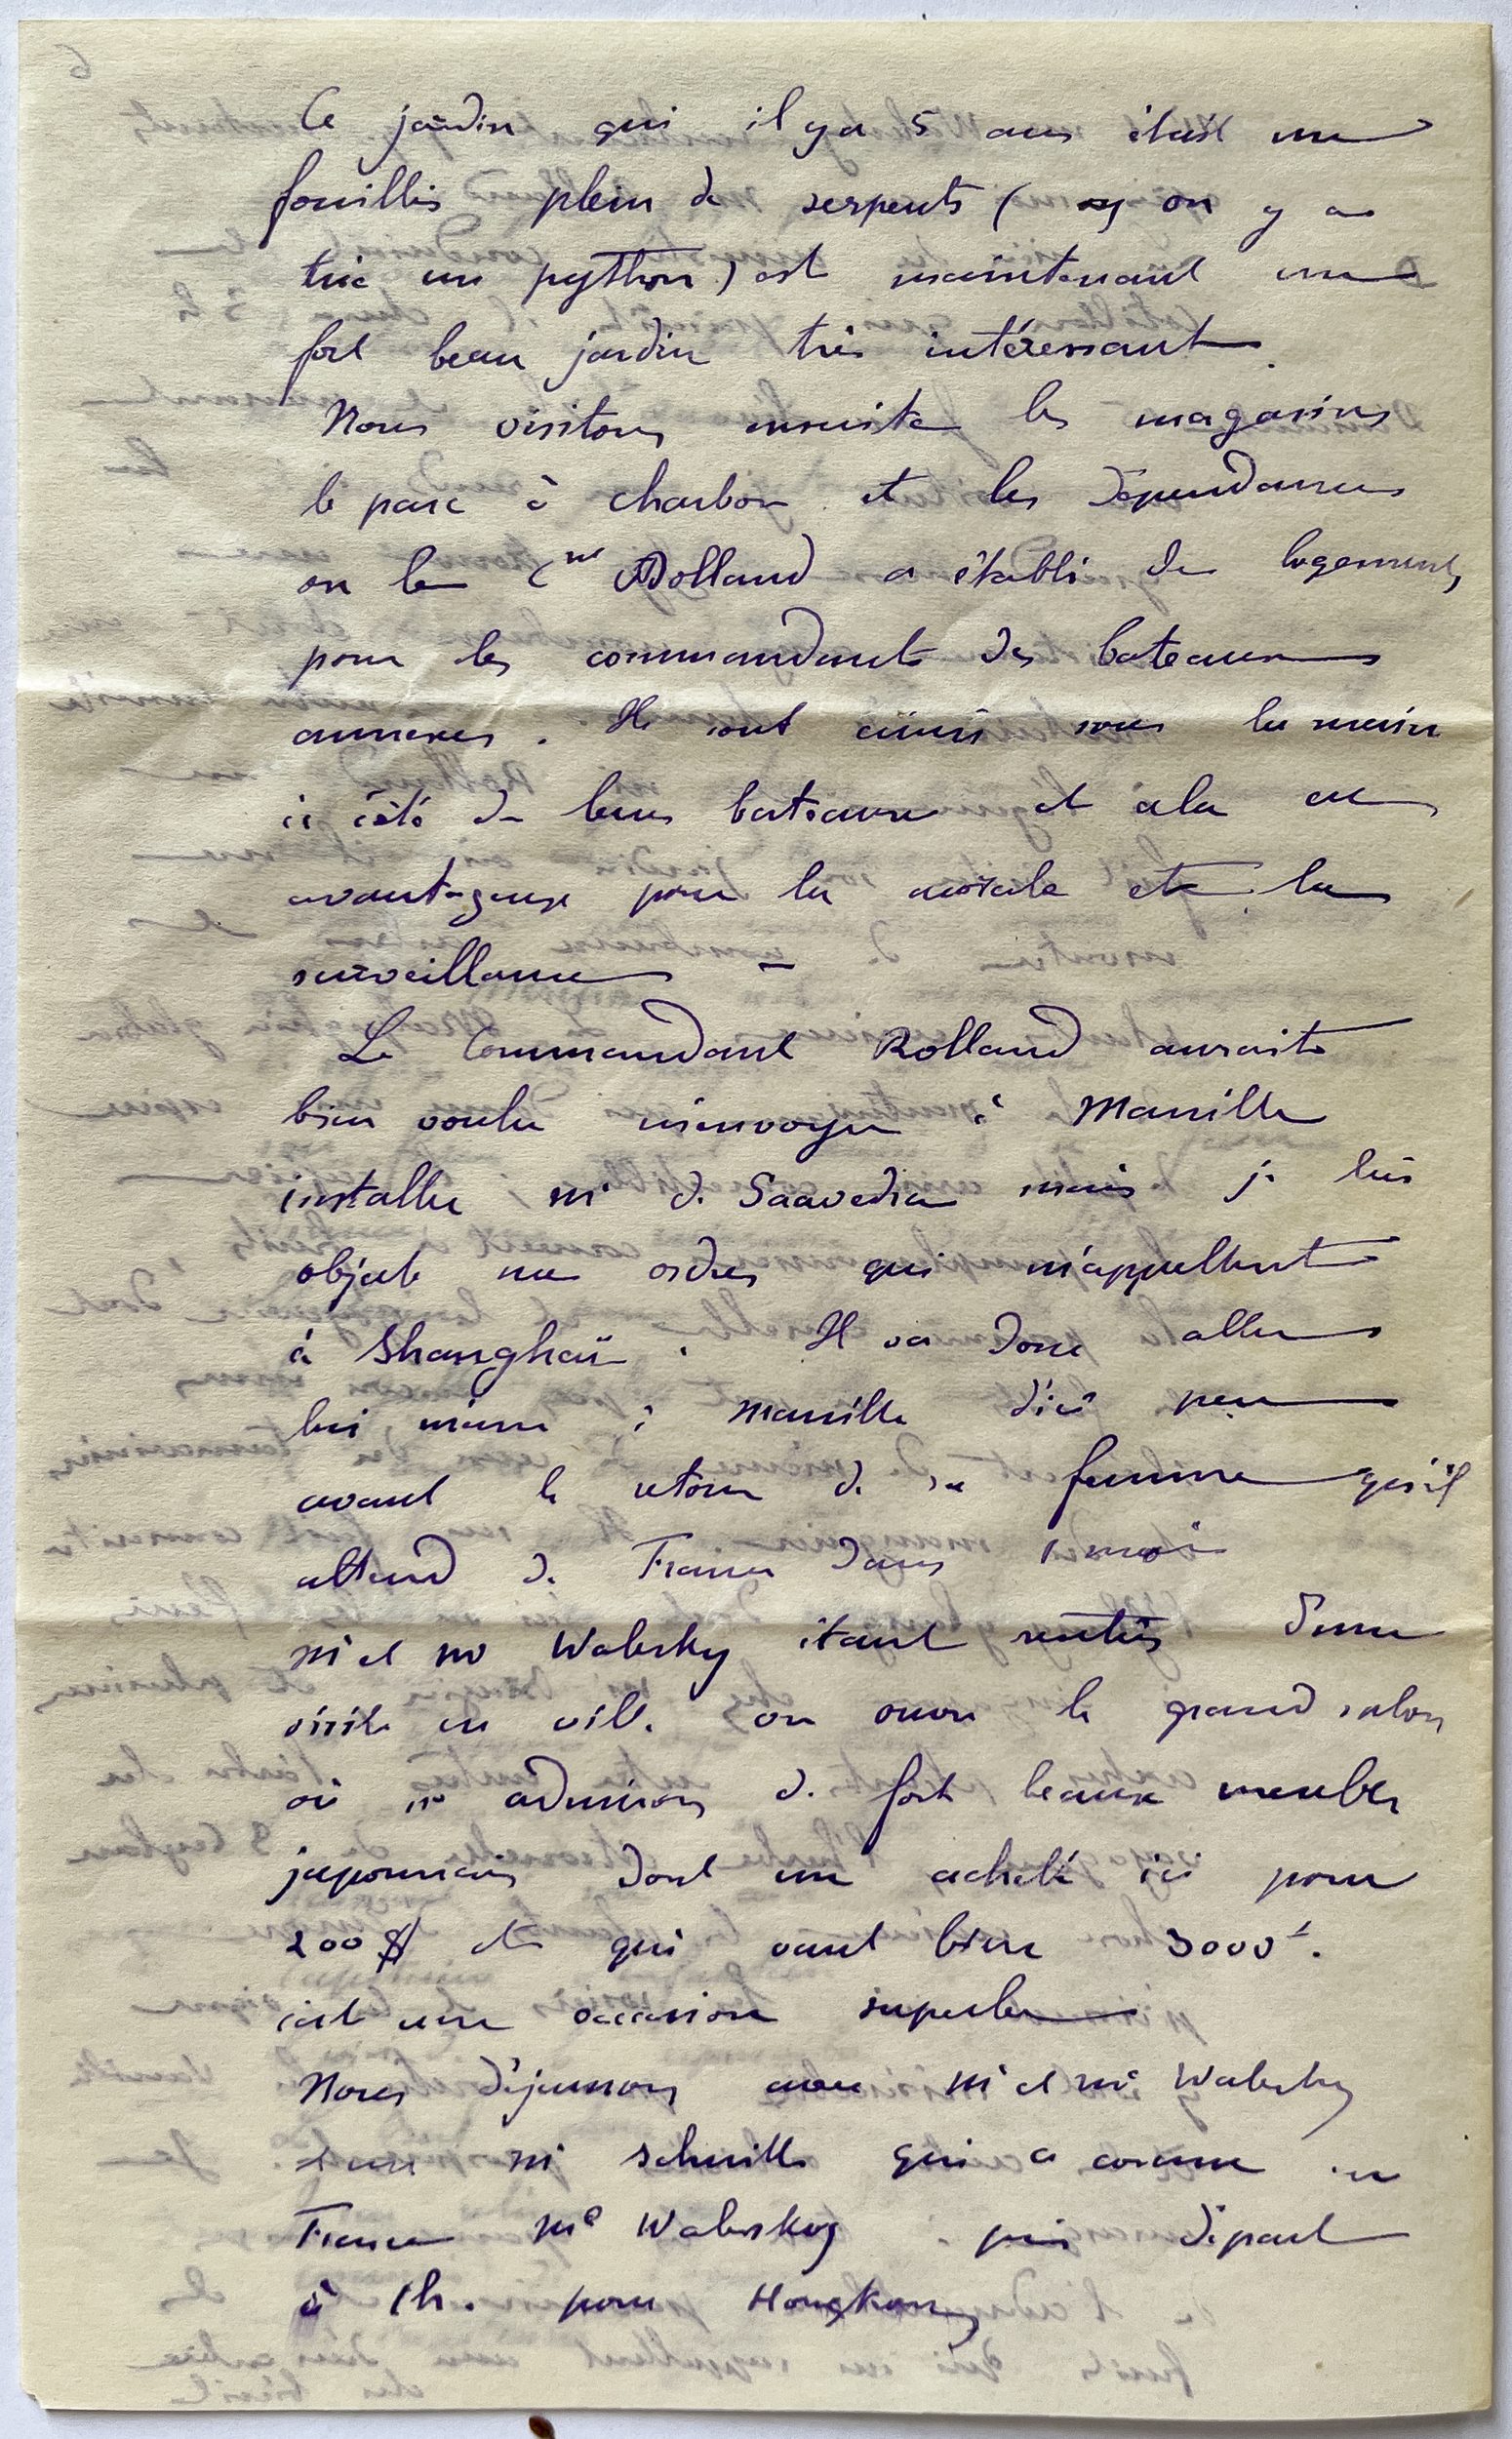 Ce jardin qui il y a 5 ans était un
fouillis plein de serpents (on y a
tué un python) est maintenant un
fort beau jardin très intéressant.
Nous visitons ensuite les magasins
le parc à charbon et les dépendances
ou le Cne Rolland a établi des logements
pour les commandants des bateaux
annexes. Ils sont ainsi sous la main
à côté de leurs bateaux et cela est
avantageux pour la morale et la
surveillance –
Le Commandant Rolland aurait
bien voulu m'envoyer à Manille
installer Mr de Saavedra mais je lui
objecte mes ordres qui m'appellent
à Shanghaï. Il va donc aller
lui même à Manille d'ici peu
avant le retour de sa femme qu'il
attend de France dans 1 mois
Mr et Me Walesky étant rentrés d'une
visite en ville on ouvre le grand salon
où nous admirons de fort beaux meubles
japonnais dont un acheté ici pour
200 $ et qui vaut bien 3000 f.
c'est une occasion superbe
Nous déjeunons avec Mr et Me Walesky
Mr Schmitt qui a connu en
France Me Walesky puis départ
à 1h. pour Hongkong